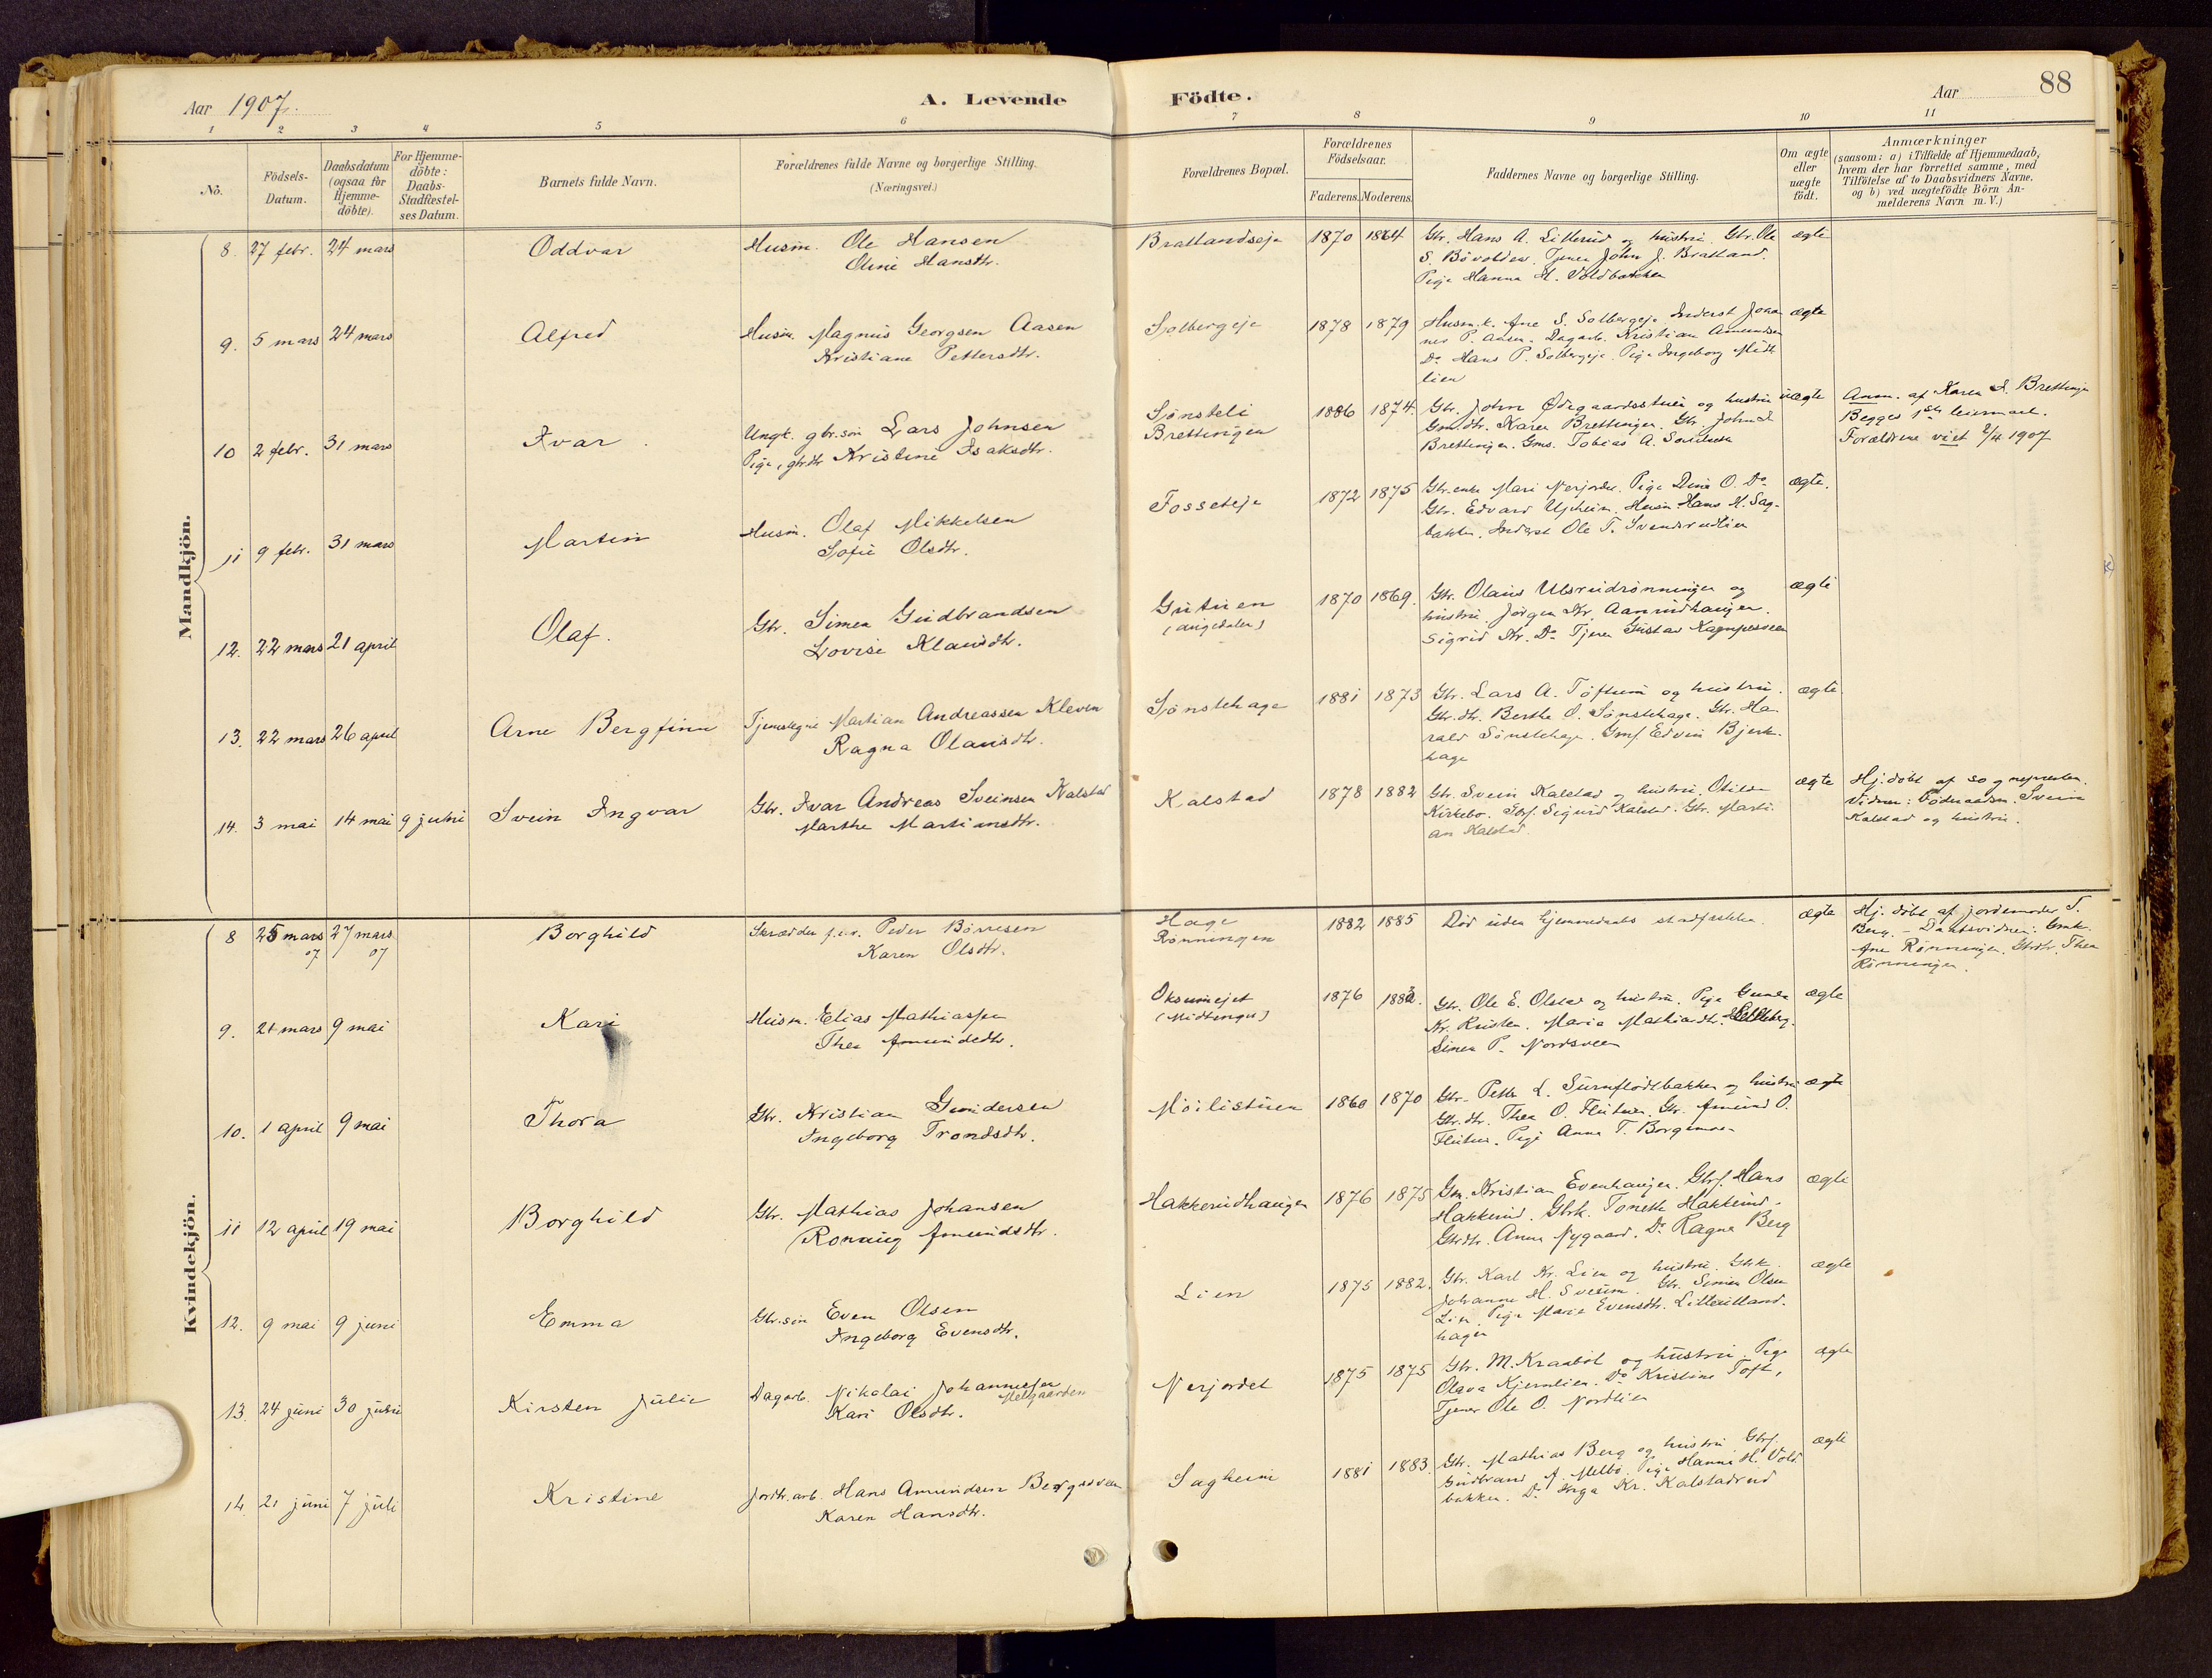 Aar 1907.
A. Levende Födte.
Aar 88
1 2 3 4 5 6 7 8 9 10 11
No.
Födsels-Datum.
Daabsdatum (ogsaa for Hjemme-döbte).
For Hjemme-döbte: Daabs-Stadfæstel-ses Datum.
Barnets fulde Navn.
Forældrenes fulde Navne og borgerlige Stilling.
(Næringsvei.)
Forældrenes Bopæl.
Forældrenes Födselsaar.
Faderens. Moderens.
Faddernes Navne og borgerlige Stilling.
Om ægte eller uægte födt.
Anmærkninger
(saasom: a) i Tilfælde af Hjemmedaab,
hvem der har forrettet samme, med
Tilföielse af to Daabsvidners Navne,
og b) ved uægtefödte Börn An-
melderens Navn m. V.)
Mandkjön.
8. 27 febr. 24 mars Oddvar Husm. Ole Hansen Bratlandseje 1870 1864 Gbr. Hans A. Litterud og hustru. Gbr. Ole ægte
Oline Hansdtr. S. Bövolden. Tjener John J. Bratland.
Pige Hanna H. Voldbakken
9. 5 mars 24 mars Alfred Husm. Magnus Georgsen Aasen Solbergeje 1878 1879 Husm.k. Ane S. Solbergeje Inderst Johan ægte
Kristiane Pettersdtr. nes P. Aasen. Dagarb. Kristian Amundsen
Do Hans P. Solbergeje. Pige Ingeborg Midt
lien
10 2 febr. 31 mars Ivar Ungk. gbr.søn Lars Johnsen Sønsteli 1886 1874. Gbr. John Ødegaardsstuen og hustru uægte Anm. af Karen I. Brettingen
Pige, gbrdtr Kristine Isaksdtr. Brettingen Gmdtr. Karen Brettingen. Gbr. John I. Begges 1ste leiermaal.
Brettingen. Gms. Tobias A. Forældrene viet 2/4 1907
11 9 febr. 31 mars Martin Husm. Olaf Mikkelsen Fosseteje 1872 1875 Gbr.enke Mari Nerjordet. Pige Dina O. Do ægte.
Sofie Olsdtr. Gbr. Edvard Ujheim. Husm Hans M. Sag-
bakken. Inderst Ole T. Svendsrudlien
12. 22 mars 21 april Olaf. Gbr. Simen Gudbrandsen Gutuen 1870 1869. Gbr. Olaus Ulsrudrønningen og ægte
Lovise Klausdtr. hustru. Jörgen Kr. Aamundhaugen.
Sigrid Kr. Do Tjener Gustav Kampesveen
13. 22 mars 26 april Arne Bergfinn Tjenstegut Martian Andreassen Kleven Sønstehage 1881 1873 Gbr. Lars A. Töftum og hustru. ægte
Ragna Olausdtr. Gbr.dtr. Berthe O. Sønstehage. Gbr. Ha-
rald Sønstehage. Gmf Edvin Bjerk-
hage
14. 3 mai 14 mai 9 juni Svein Ingvar Gbr. Ivar Andreas Sveinsen Kalstad Kalstad 1878 1882 Gbr. Svein Kalstad og hustru. Otilie ægte Hj.døbt af sognepresten.
Marthe Martinusdtr. Kirkebø. Gbrf. Sigurd Kalstad. Gbr. Marti- Vidner: Svein
an Kalstad. Kalstad og hustru.
Kvindekjön.
8 25 mars 07 27 mars 07 Borghild Skrædder Peder Børresen Hage Rønningen 1882 1885 Død uden hjemmedaabs stadfæstelse. ægte Hj. døbt af jordemoder T.
Karen Olsdtr. Berg. - Daabsvidner: Gmk.
Ane Rønningen. Gbrdtr. Thea
Rønningen.
9. 21 mars 9 mai Kari Husm. Elias Mathiassen Oksumejet 1876 1883. Gbr. Ole E. Olstad og hustru. Pige Gunda ægte
Thea Amundsdtr. (Midtenget) Kr. Maria Mathiasdtr.
Simen P. Nordsveen
10. 1 april 9 mai Thora Gbr. Kristian Gundersen Möilistuen 1860 1870 Gbr. Petter L. Surnflödtbakken og hustru ægte
Ingeborg Trondsdtr. Gbr.dtr. Thea O. Gbr. Amund O.
Pige Anna T. Borgemoen
11 12 april 19 mai Borghild Gbr. Mathias Johansen Hakkerudhaugen 1876 1875 Gm. Kristian Evenhaugen. Gbrf. Hans ægte
Ronaug Amundsdtr. Hakkerud. Gbrk. Tonette Hakkerud.
Gbrdtr. Anna Nygaard. Do Ragna Berg
12. 9 mai 9 juni Emma Gbr.søn Even Olsen Lien 1875 1882. Gbr. Karl Kr. Lien og hustru. Gbrk. ægte
Ingeborg Evensdtr. Johanne H. Sveum. Gbr. Simen Olsen
Lien. Pige Marie Evensdtr.
hagen
13. 24 juni 30 juni Kirsten Julie Dagarb. Nikolai Johannessen Melgaarden Nerjordet 1875 1875 Gbr. M. Kraabøl og hustru. Pige ægte
Kari Olsdtr. Olava Kjernlien. Do Kristine Toft,
Tjener Ole O. Nordlien
14. 21 juni 7 juli Kristine Jordbr.arb. Hans Amundsen Bergesveen Sagheim 1881 1883. Gbr. Mathias Berg og hustru Gbrf. ægte
Karen Hansdtr. Gudbrand A. Melbø. Pige Hanna H. Vold
bakken. Do Inga Kr. Kalstadrud